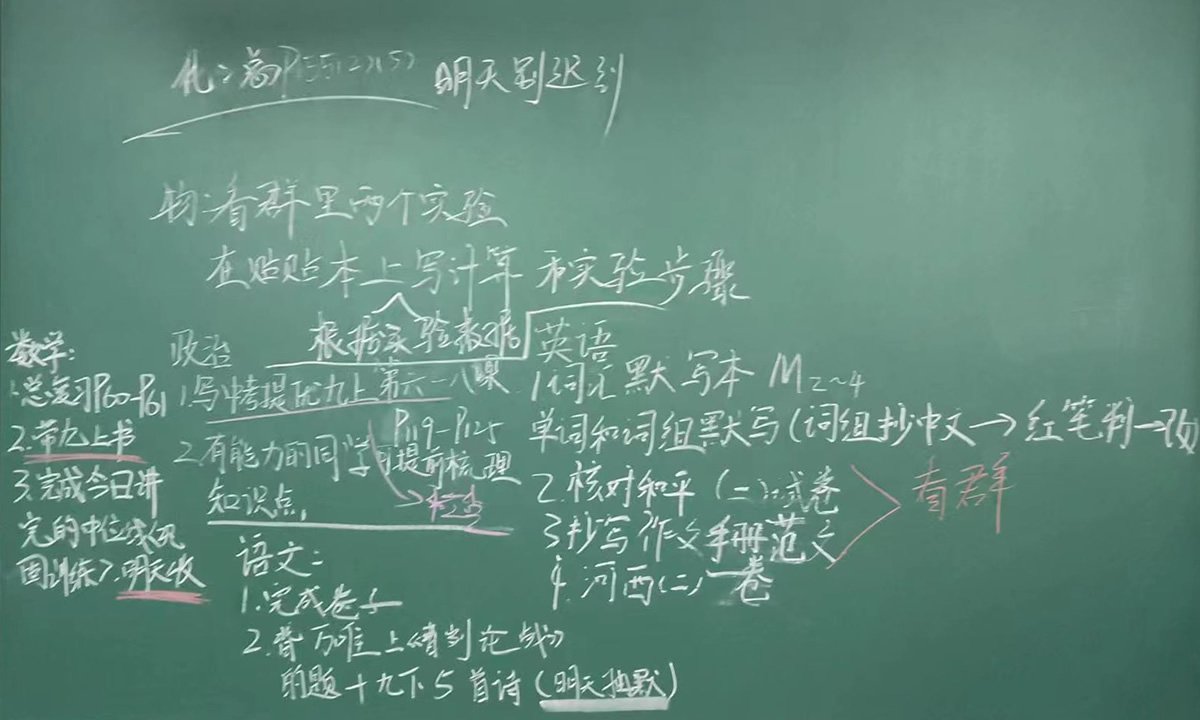 明天别迟到
物:看群里两个实验
在贴贴本上写计算和实验步骤
根据实验数据
数学:
1.总复习P60-P61
2.带九上书
3.完成今日讲
完的中位线巩
固训练7.明天收
政治
1.写中考提优九上第六一八课
P119-P125
2.有能力的同学可提前梳理
知识点,
语文:
1.完成卷子
2.背万唯上《曹刿论战》
的题+九下5首诗(明天抽默)
英语
1.词汇默写本 M2~4
单词和词组默写(词组抄中文→红笔判→改
2.核对和平(二)试卷
3.抄写作文手册范文
4.河西(二)一卷
看群